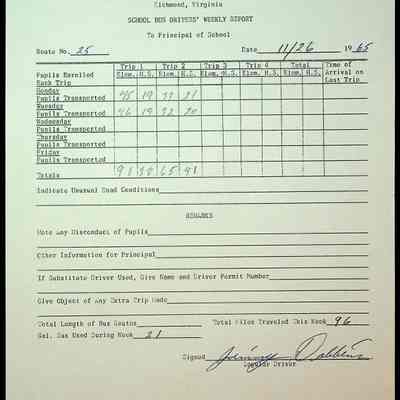 Richmond, Virginia
SCHOOL BUS DRIVERS' WEEKLY REPORT
To Principal of School
Route No. 25 Date 11/26 1965
Trip 1 Trip 2 Trip 3 Trip 4 Total Time of
Pupils Enrolled Elem. H.S. Elem. H.S. Elem. H.S. Elem. H.S. Elem. H.S. Arrival on
Each Trip Last Trip
Monday
Pupils Transported 45 19 33 21
Tuesday
Pupils Transported 46 19 32 20
Wednesday
Pupils Transported
Thursday
Pupils Transported
Friday
Pupils Transported
Totals 91 38 65 41
Indicate Unusual Road Conditions
REMARKS
Note Any Misconduct of Pupils
Other Information for Principal
If Substitute Driver Used, Give Name and Driver Permit Number
Give Object of Any Extra Trip Made
Total Length of Bus Routes Total Miles Traveled This Week 96
Gal. Gas Used During Week 21
Signed Jimmy Dobbins
Regular Driver